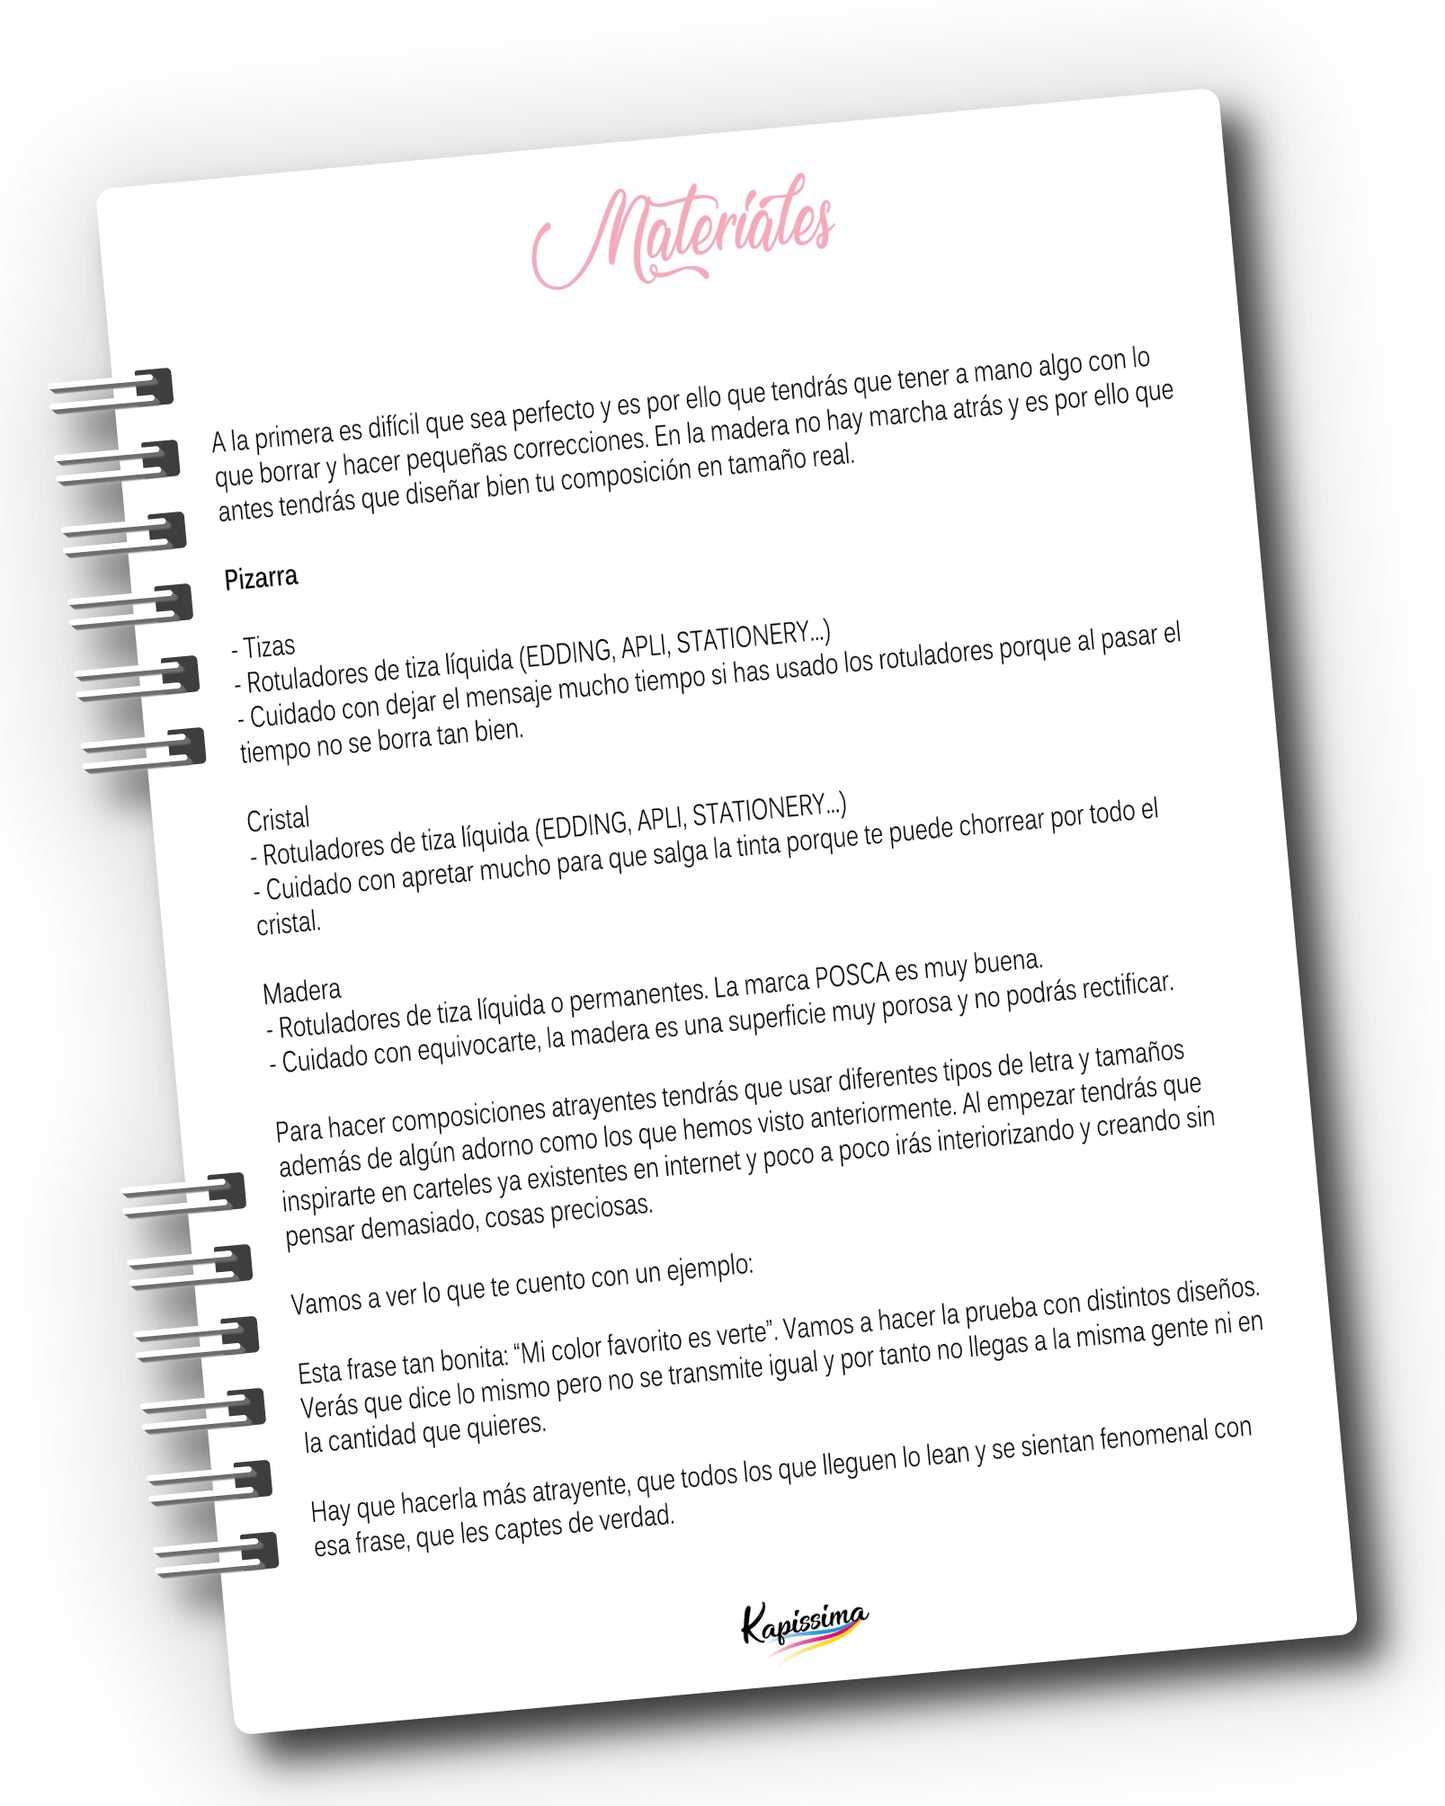 Materiales
A la primera es difícil que sea perfecto y es por ello que tendrás que tener a mano algo con lo
que borrar y hacer pequeñas correcciones. En la madera no hay marcha atrás y es por ello que
antes tendrás que diseñar bien tu composición en tamaño real.
Pizarra
- Tizas
- Rotuladores de tiza líquida (EDDING, APLI, STATIONERY...)
- Cuidado con dejar el mensaje mucho tiempo si has usado los rotuladores porque al pasar el
tiempo no se borra tan bien.
Cristal
- Rotuladores de tiza líquida (EDDING, APLI, STATIONERY...)
- Cuidado con apretar mucho para que salga la tinta porque te puede chorrear por todo el
cristal.
Madera
- Rotuladores de tiza líquida o permanentes. La marca POSCA es muy buena.
- Cuidado con equivocarte, la madera es una superficie muy porosa y no podrás rectificar.
Para hacer composiciones atrayentes tendrás que usar diferentes tipos de letra y tamaños
además de algún adorno como los que hemos visto anteriormente. Al empezar tendrás que
inspirarte en carteles ya existentes en internet y poco a poco irás interiorizando y creando sin
pensar demasiado, cosas preciosas.
Vamos a ver lo que te cuento con un ejemplo:
Esta frase tan bonita: “Mi color favorito es verte”. Vamos a hacer la prueba con distintos diseños.
Verás que dice lo mismo pero no se transmite igual y por tanto no llegas a la misma gente ni en
la cantidad que quieres.
Hay que hacerla más atrayente, que todos los que lleguen lo lean y se sientan fenomenal con
esa frase, que les captes de verdad.
Kapissima